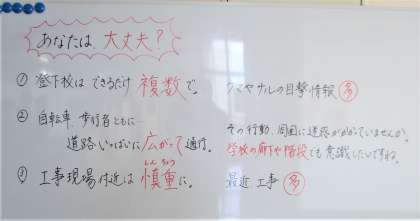 あなたは、大丈夫?
① 登下校は できるだけ 複数で。 クマやサルの目撃情報 多
② 自転車、歩行者ともに…
道路いっぱいに広がって通行。
その行動、周囲に迷惑がかかっていませんか。
学校の廊下や階段でも意識したいですね。
しんちょう
③ 工事現場付近は 慎重に。 最近 工事 多